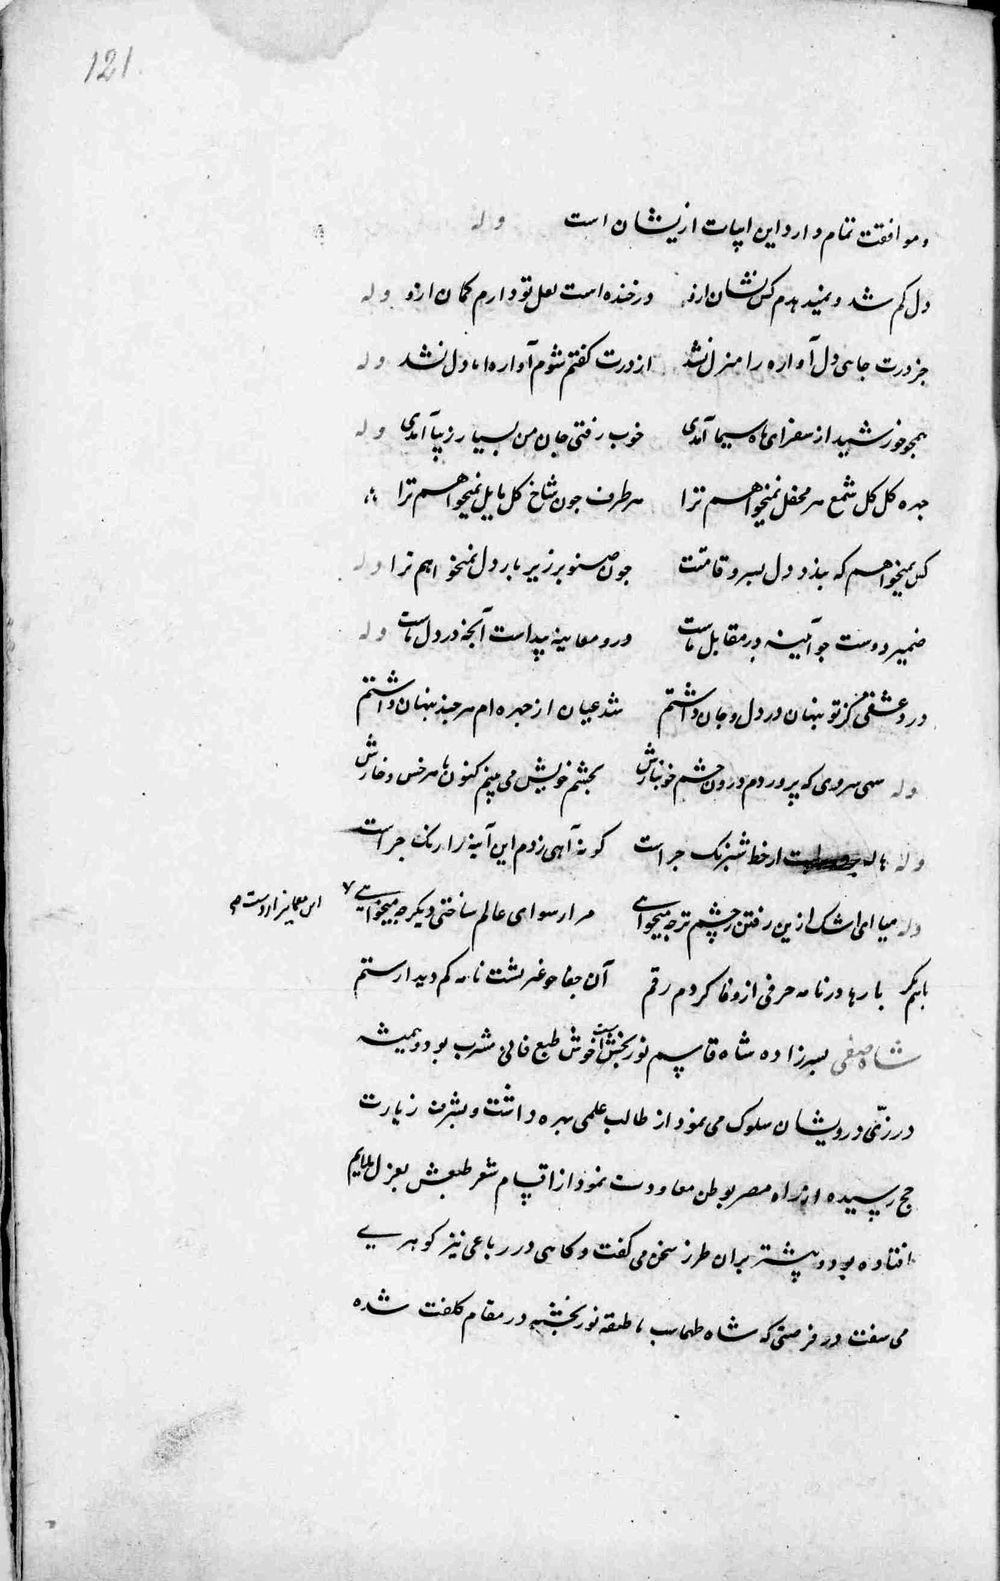 121
وموافقت تمام دارد این ابیات ازیشان است وله
دل کم شد و نمیدهدم کس نشان ازو در خنده است لعل تو دارم کمان ازو وله
جز درت جای دل آواره را منزل نشد از درت کفتم شوم آواره اما دل نشد وله
همچو خورشید از سفر ای ماه سیما آمدی خوب رفتی جان من بسیار زیبا آمدی وله
چهره کل کل شمع هر محفل نمیخواهم ترا هر طرف چون شاخ کل مایل نمیخواهم ترا
کس نمیخواهم که بندد دل بسرو قامتت چون صنوبر زیر بار دل نمیخواهم ترا وله
ضمیر دوست چو آیینه در مقابل ماست درو معاینه پیداست آنچه در دل ماست وله
درد عشقی کز تو پنهان در دل و جان داشتم شد عیان از چهره ام هر چند پنهان داشتم
وله سهی سروی که پروردم درون چشم خونبارش بچشم خویش می بینم کنون با هر خس و خارش
وله هاله از خط شبرنک چراست کر نه آهی زدم این آینه را رنک چراست
وله میا ای اشک ازین رفتن ز چشم تر چه میخواهی مرا رسوای عالم ساختی دیکر چه میخواهی
این معما نیز ازوست
بارها در نامه حرفی از وفا کردم رقم آن جفاجو غیر پشت نامه کم دید از ستم
شاه صفی پسرزاده شاه قاسم نوربخش است خوش طبع فانی مشرب بود و همیشه
در زی درویشان سلوک می نمود از طالب علمی بهره داشت و بشرف زیارت
حج رسیده از راه مصر بوطن معاودت نمود از اقسام شعر طبعش بغزل ملایم
افتاده بود و بیشتر بران طرز سخن می کفت و کاهی در رباعی نیز کوهری
می سفت در فرصتی که شاه طهماسب با طبقه نوربخشیه در مقام کلفت شده